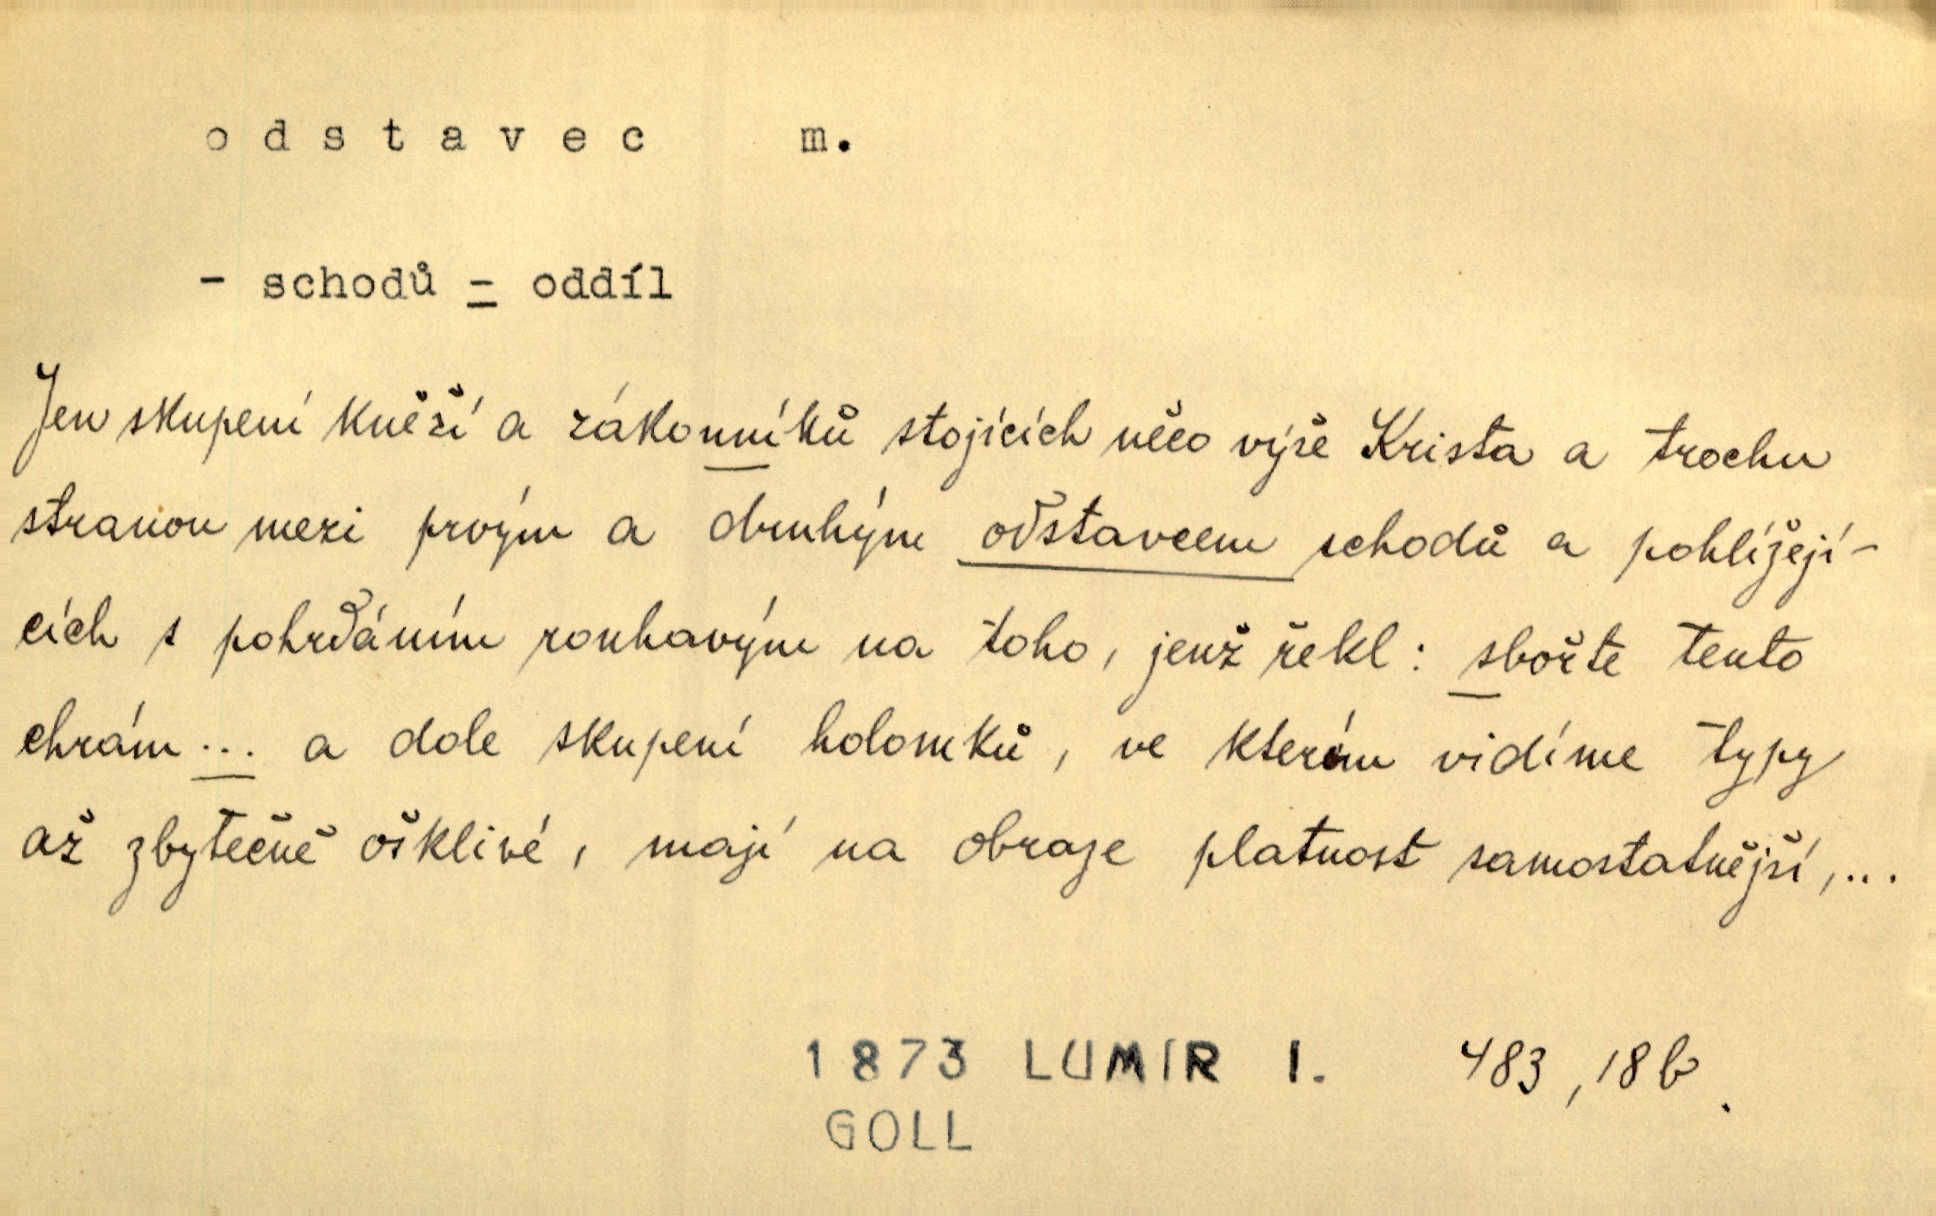 odstavec m.
- schodů = oddíl
Jen skupení kněží a zákonníků stojících něco výše Krista a trochu
stranou mezi prvým a druhým odstavcem schodů a pohlížejí-
cích s pohrdáním rouhavým na toho, jenž řekl: sbořte tento
chrám ... a dole skupení holomků, ve kterém vidíme typy
až zbytečně ošklivé, mají na obraze platnost samostatnější,...
1873 LUMÍR I. 483, 18b.
GOLL